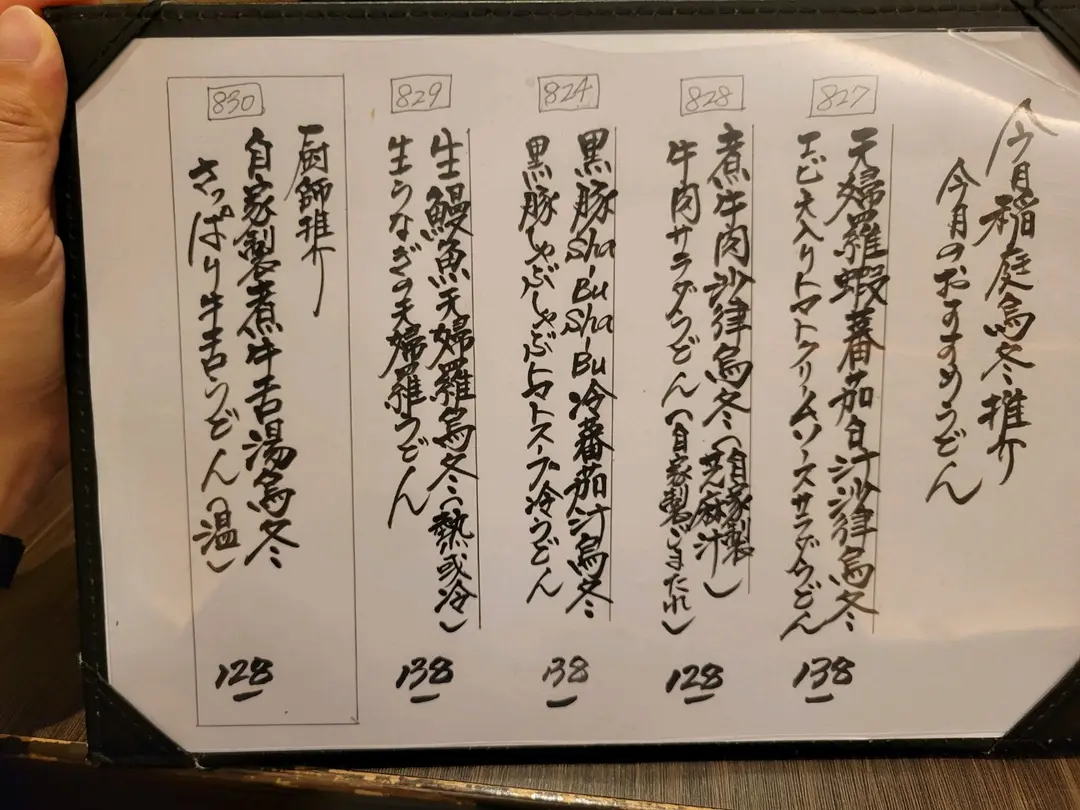 今月稲庭烏冬推介
今月のおすすめうどん
827
天婦羅蝦蕃茄白汁沙律烏冬
エビ天入りトマトクリームソースサラダうどん
138
828
煮牛肉沙律烏冬(自家製芝麻汁)
牛肉サラダうどん(自家製ごまたれ)
128
824
黒豚Sha-Bu Sha-Bu冷蕃茄汁烏冬
黒豚しゃぶしゃぶトマトスープ冷うどん
138
829
生鰻魚天婦羅烏冬(熱或冷)
生うなぎの天婦羅うどん
138
830
厨師推介
自家製煮牛舌湯烏冬
さっぱり牛舌うどん(温)
128